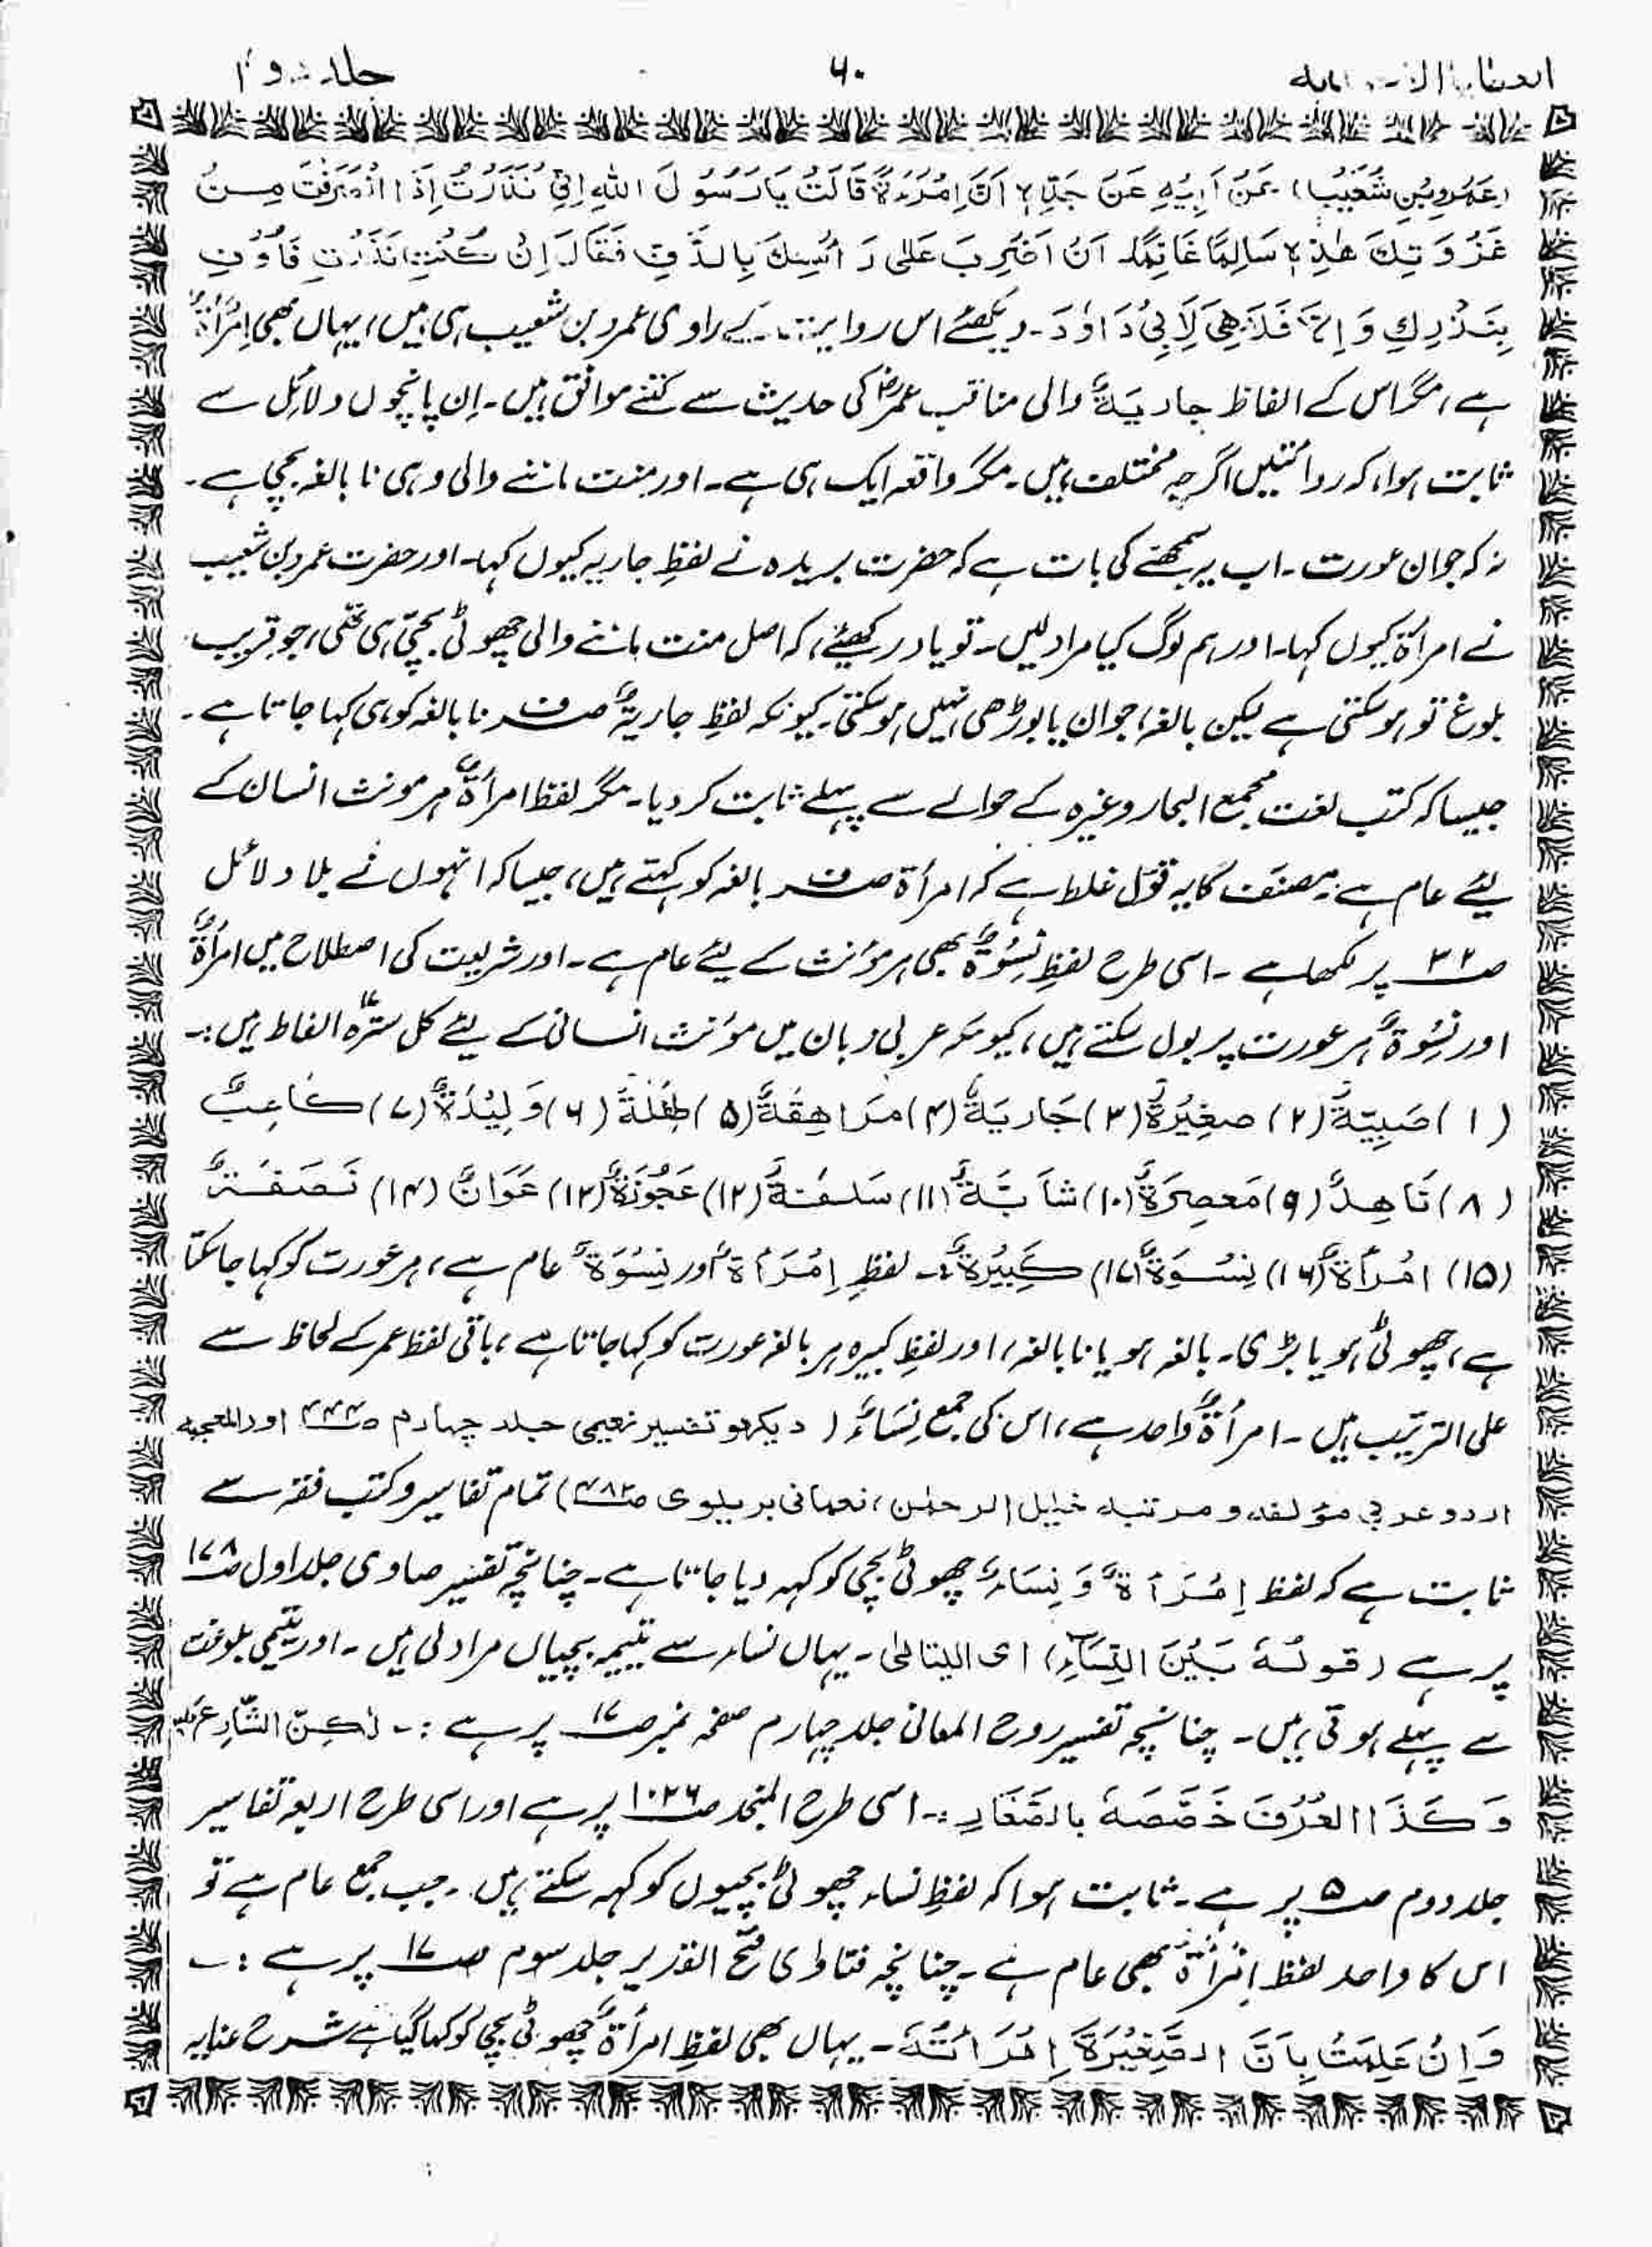 جلد دوم
۶۰
العطایا الاحمدیہ
(عَمْرِو بْنِ شُعَيْبٍ) عَنْ اَبِيْهِ عَنْ جَدِّهٖ اَنَّ اِمْرَءَةً قَالَتْ يَا رَسُوْلَ اللهِ اِنِّيْ نَذَرْتُ اِذَا انْصَرَفْتَ مِنْ
غَزْوَتِكَ هٰذِهٖ سَالِمًا غَانِمًا اَنْ اَضْرِبَ عَلٰى رَأْسِكَ بِالدَّفِّ فَقَالَ اِنْ كُنْتِ نَذَرْتِ فَاَوْفِ
بِنَذْرِكِ وَ اِلَّا فَلَا هِيَ لِاَبِيْ دَاوٗدَ ۔ دیکھئے اس روایت کے راوی عمرو بن شعیب ہی ہیں، یہاں بھی اِمْرَأَةٌ
ہے، مگر اس کے الفاظ جَارِيَةٌ والی مناقب عمرؓ کی حدیث سے کتنے موافق ہیں۔ اِن پانچوں دلائل سے
ثابت ہوا، کہ روائتیں اگرچہ مختلف ہیں۔ مگر واقعہ ایک ہی ہے۔ اور منت ماننے والی وہی نابالغہ بچی ہے۔
نہ کہ جوان عورت۔ اب یہ سمجھنے کی بات ہے کہ حضرت بریدہ نے لفظِ جاریہ کیوں کہا۔ اور حضرت عمرو بن شعیب
نے امرأة کیوں کہا۔ اور ہم لوگ کیا مراد لیں۔ تو یاد رکھیئے، کہ اصل منت ماننے والی چھوٹی بچّی ہی تھی، جو قریب
بلوغ تو ہو سکتی ہے لیکن بالغہ، جوان یا بوڑھی نہیں ہو سکتی۔ کیونکہ لفظِ جاریةٌ صرف نابالغہ کو ہی کہا جاتا ہے۔
جیسا کہ کتب لغت مجمع البحار وغیرہ کے حوالے سے پہلے ثابت کر دیا۔ مگر لفظ امرأةٌ ہر مونث انسان کے
لیئے عام ہے۔ مصنف کا یہ قول غلط ہے کہ امرأة صرف بالغہ کو کہتے ہیں، جیسا کہ انہوں نے بلا دلائل
صـ۳۲ پر لکھا ہے۔ اسی طرح لفظِ نِسْوَةٌ بھی ہر مؤنث کے لیئے عام ہے۔ اور شریعت کی اصطلاح میں امرأةٌ
اور نِسْوَةٌ ہر عورت پر بول سکتے ہیں، کیونکہ عربی زبان میں مؤنث انسانی کے لیئے کل سترہ۱۷ الفاظ ہیں:۔
(۱) صَبِيَّةٌ (۲) صغِيْرَةٌ (۳) جَارِيَةٌ (۴) مَرَاهِقَةٌ (۵) طِفْلَةٌ (۶) وَلِيْدَةٌ (۷) كَاعِبٌ
(۸) نَاهِدٌ (۹) مَعصِرَةٌ (۱۰) شَابَّةٌ (۱۱) سَلفَةٌ (۱۲) عَجُوْزَةٌ (۱۳) عَوَانٌ (۱۴) نَصَفَةٌ
(۱۵) امْرَأَةٌ (۱۶) نِسْوَةٌ (۱۷) كَبِيْرَةٌ۔ لفظِ اِمْرَأَةٌ اور نِسْوَةٌ عام ہے، ہر عورت کو کہا جا سکتا
ہے، چھوٹی ہو یا بڑی۔ بالغہ ہو یا نابالغہ، اور لفظِ کبیرہ ہر بالغہ عورت کو کہا جاتا ہے، باقی لفظ عمر کے لحاظ سے
علی الترتیب ہیں۔ امرأةٌ واحد ہے، اس کی جمع نِسَاءٌ (دیکھو تفسیر نعیمی جلد چہارم صـ۴۴۴ اور المعجم
اردو عربی مؤلفہ و مرتبہ خلیل الرحمٰن، نعمانی بریلوی صـ۴۸۲) تمام تفاسیر و کتب فقہ سے
ثابت ہے کہ لفظ اِمْرَأَةٌ وَ نِسَاءٌ چھوٹی بچی کو کہہ دیا جاتا ہے۔ چنانچہ تفسیر صاوی جلد اول صـ۱۷۸
پر ہے (قولُهٗ بَيْنَ النِّسَاءِ) ای الیتامٰی۔ یہاں نساء سے یتیمہ بچیاں مراد لی ہیں۔ اور یتیمی بلوغت
سے پہلے ہوتی ہیں۔ چنانچہ تفسیر روح المعانی جلد چہارم صفحہ نمبر صـ۱۷ پر ہے :۔ لٰكِنَّ الشَّارِعَ
وَ كَذَا العُرْفَ خَصَّصَهٗ بالصِّغَارِ:۔ اسی طرح المنجد صـ۱۰۲۶ پر ہے اور اسی طرح اربعہ تفاسیر
جلد دوم صـ۵ پر ہے۔ ثابت ہوا کہ لفظِ نساء چھوٹی بچیوں کو کہہ سکتے ہیں۔ جب جمع عام ہے تو
اس کا واحد لفظ اِمْرَأَةٌ بھی عام ہے۔ چنانچہ فتاوٰی فتح القدیر جلد سوم صـ۱۷ پر ہے :۔
وَ اِنْ عَلِمَتْ بِاَنَّ الصَّغِيْرَةَ اِمْرَأَتُهٗ۔ یہاں بھی لفظِ امرأةٌ چھوٹی بچی کو کہا گیا ہے شرح عنایہ